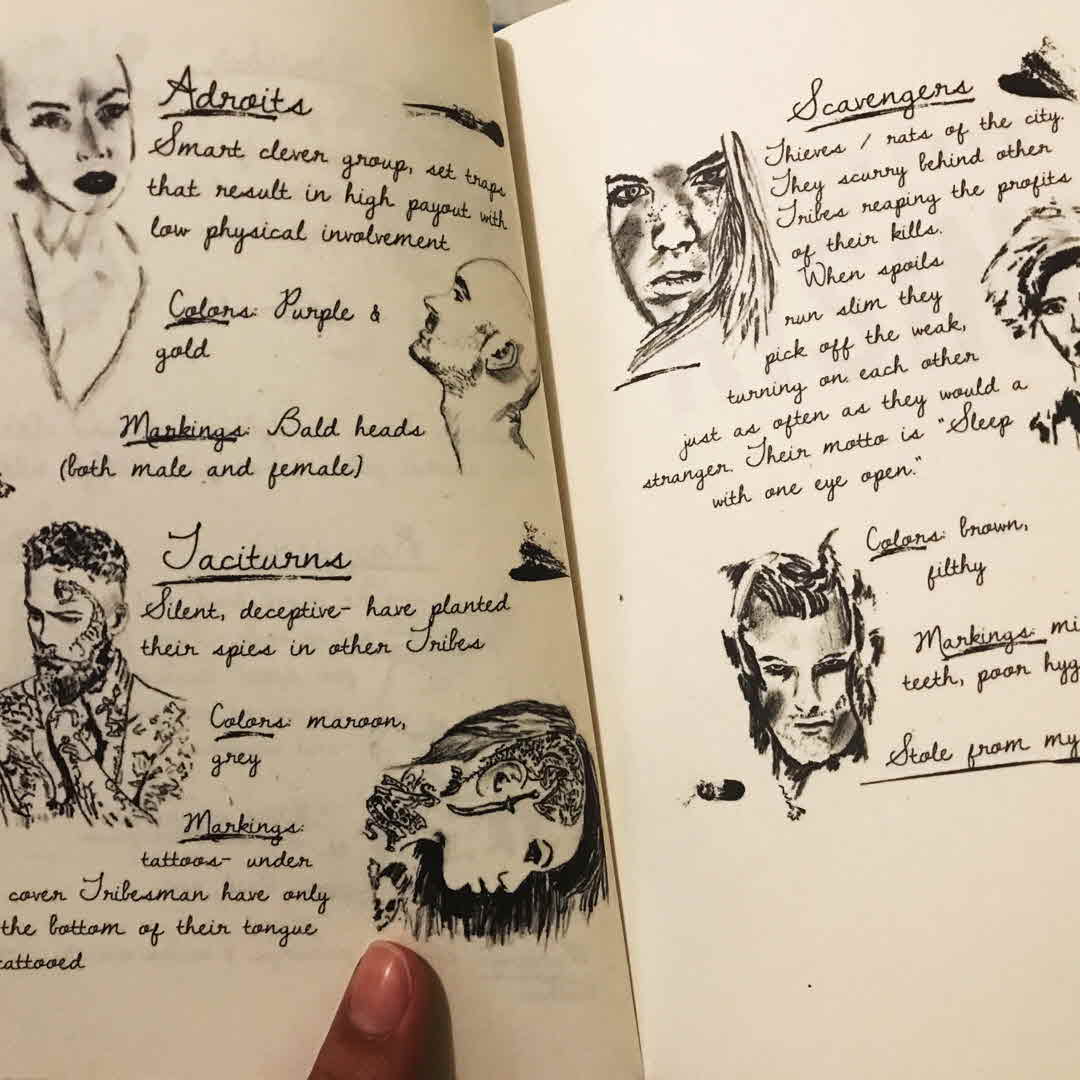 Adroits
Smart clever group, set traps
that result in high payout with
low physical involvement
Colors: Purple &
gold
Markings: Bald heads
(both male and female)
Taciturns
Silent, deceptive- have planted
their spies in other Tribes
Colors: maroon,
grey
Markings:
tattoos- under
cover Tribesman have only
the bottom of their tongue
tattooed
Scavengers
Thieves / rats of the city.
They scurry behind other
Tribes reaping the profits
of their kills.
When spoils
run slim they
pick off the weak,
turning on each other
just as often as they would a
stranger. Their motto is "Sleep
with one eye open."
Colors: brown,
filthy
Markings: mi
teeth, poor hyg
Stole from my